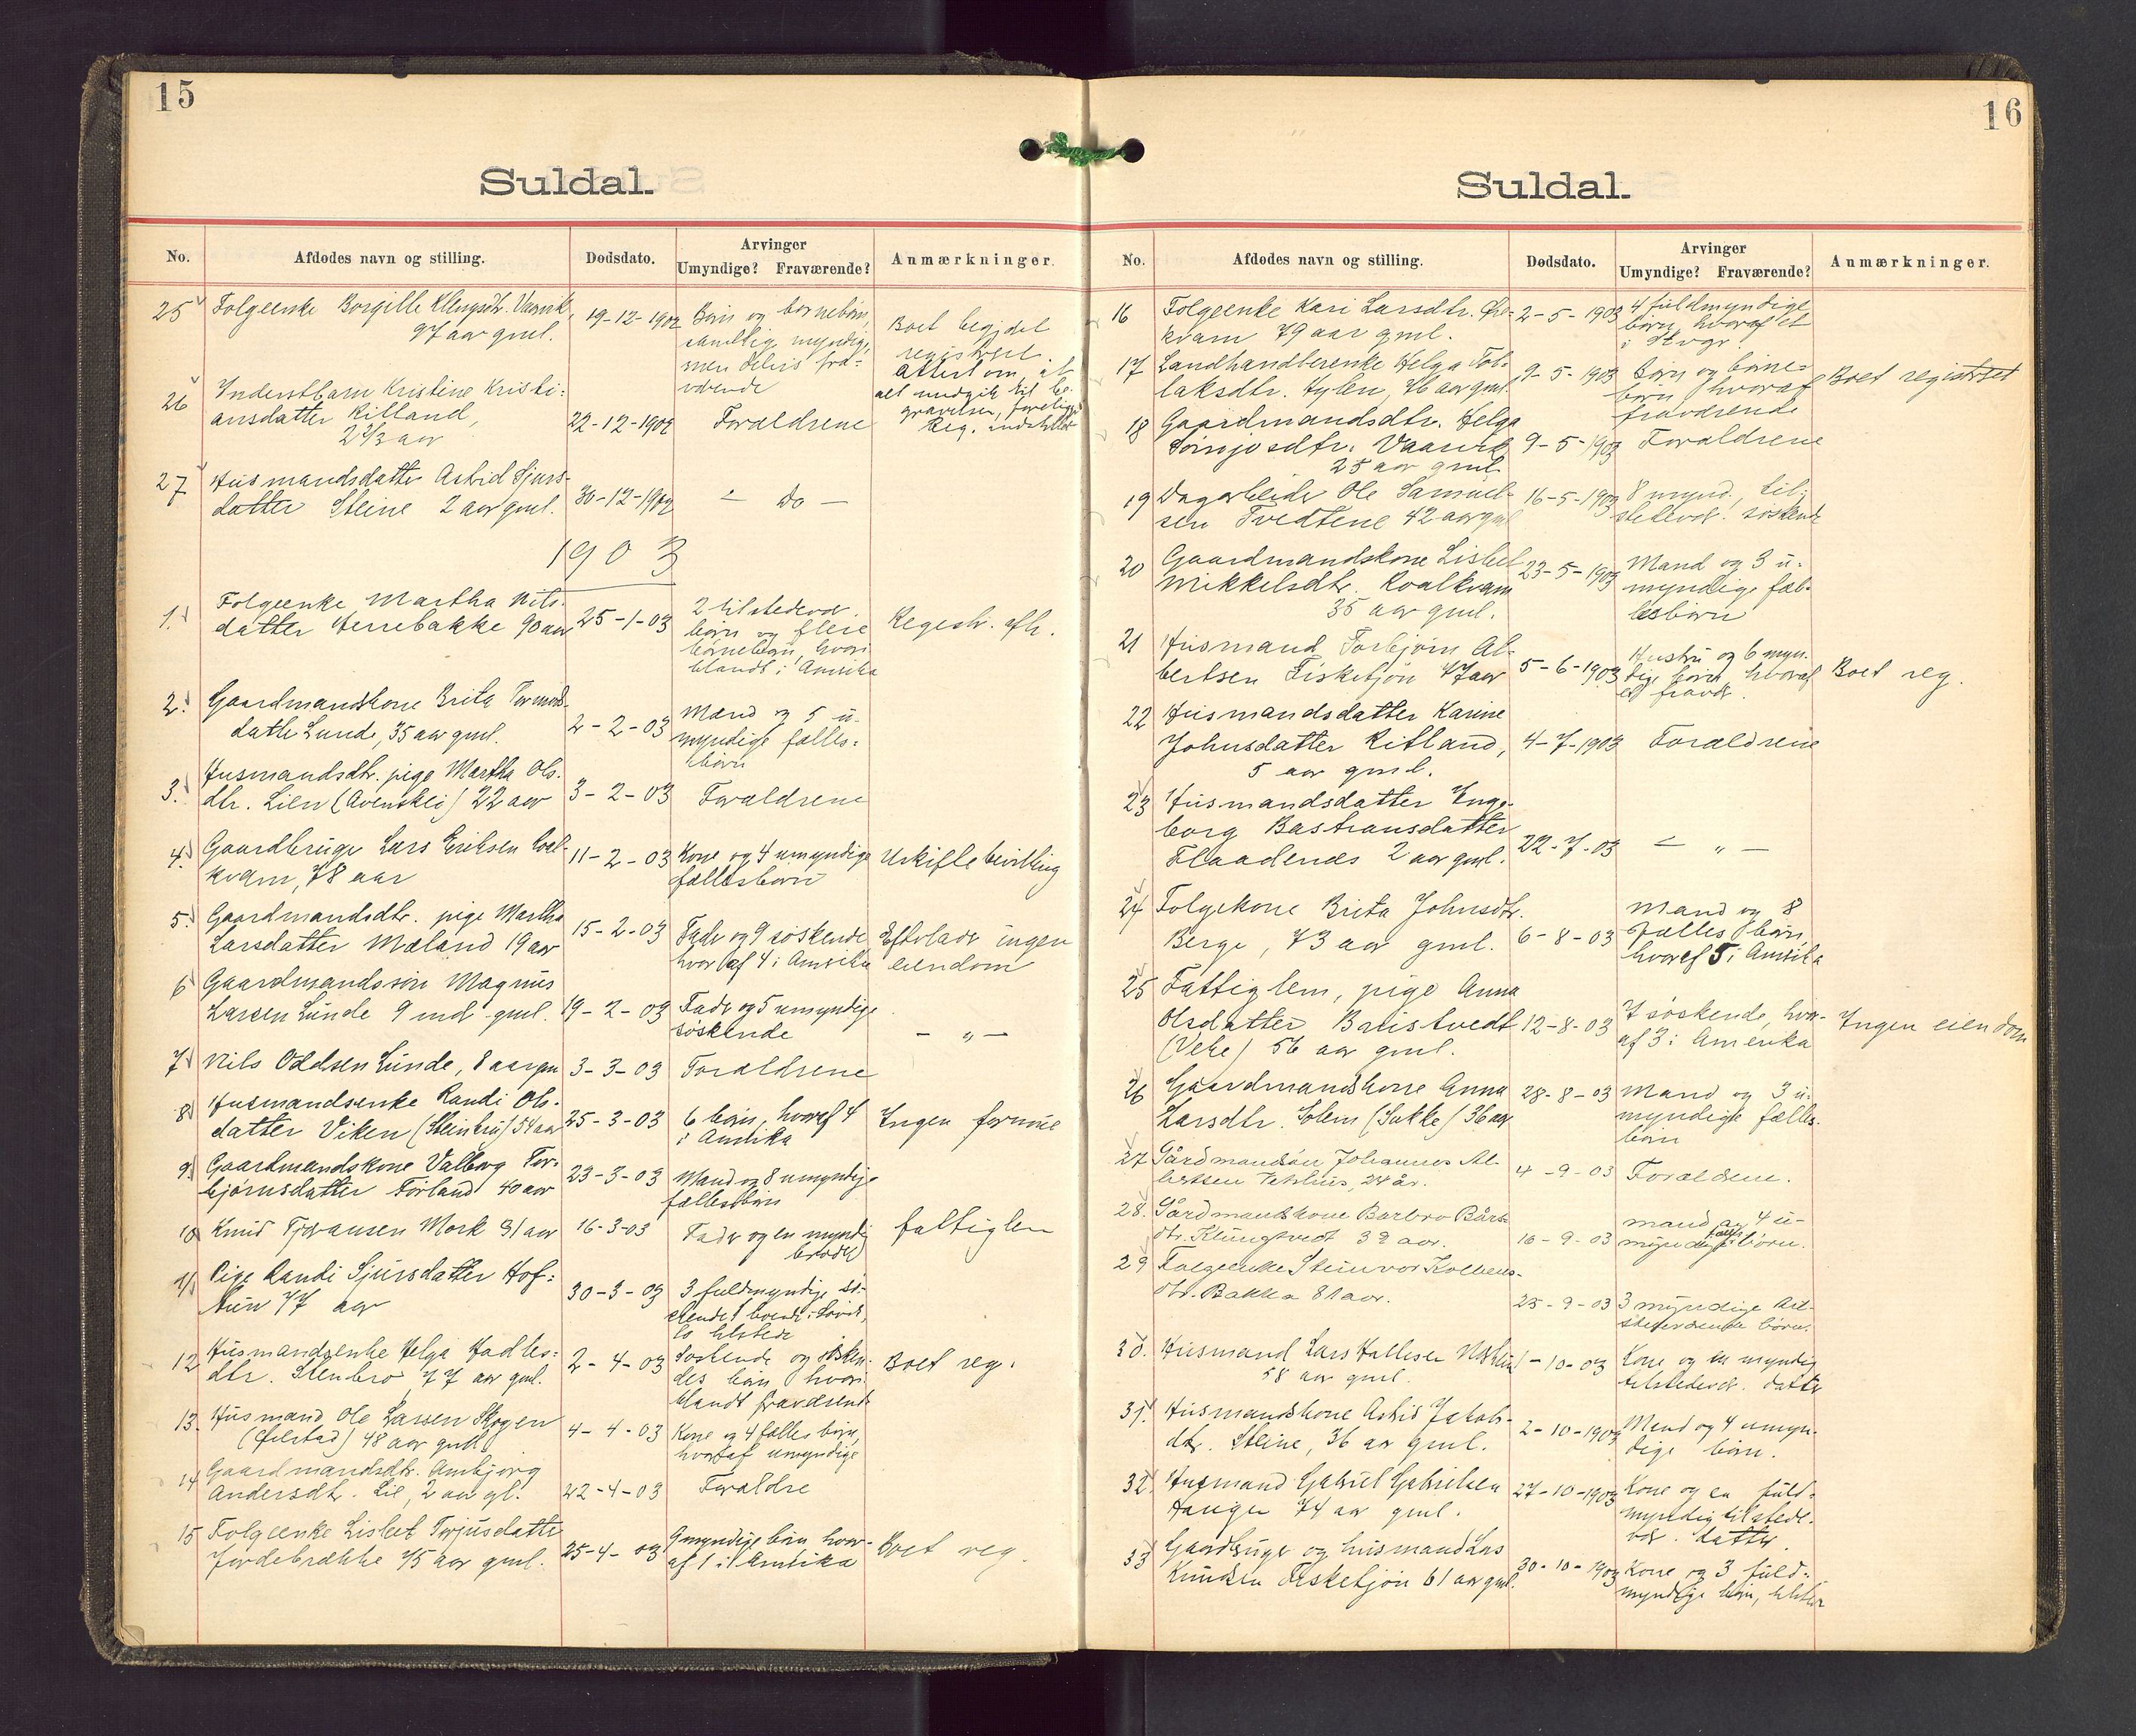 15
Suldal.
No. Afdødes navn og stilling. Dødsdato. Arvinger Umyndige? Fraværende? Anmærkninger.
25 Folgeenke Borgille 19-12-1902 Børn og børnebørn, Boet begjært
97 aar gml. samtlig myndige, registrert.
men delvis fra-
værende
Attest om, at
alt medgik til be-
gravelsen, foreligger
26 Inderstbarn Kristine Kristi-
ansdatter Ritland, 22-12-1902 Forældrene
2 2/3 aar
27 Husmandsdatter Astrid Sjurs-
datter Steine 2 aar gml. 30-12-1902 - do -
1903
1. Folgeenke Martha Nils-
datter Herrebakke 90 aar 25-1-03 2 tilstedevær.
børn og flere
børnebørn, hvori-
blandt i Amerika
Regestr. afh.
2. Gaardmandskone Brita Tormods-
datter Lunde, 35 aar gml. 2-2-03 Mand og 5 u-
myndige fælles-
børn
3. Husmandsdtr. pige Martha Ols-
dtr. Lien (Avenskei) 22 aar 3-2-03 Forældrene
4. Gaardbruger Lars Eriksen
kvam, 78 aar 11-2-03 Kone og 4 umyndige
fællesbørn
Uskiftebevilling
5. Gaardmandsdtr. pige Martha
Larsdatter Mæland 19 aar 15-2-03 Fader og 9 søskende
hvoraf 4 i Amerika
Efterlader ingen
eiendom
6 Gaardmandssøn Magnus
Larsen Lunde 9 md. gml. 19-2-03 Fader og 5 umyndige
søskende - „ -
7 Nils Oddsen Lunde, 8 aar gm 3-3-03 Forældrene
8 Husmandsenke Randi Ols-
datter Viken (Steinkrii) 54 aar 25-3-03 6 børn, hvoraf 4
i Amerika
Ingen formue
9. Gaardmandskone Valborg Tor-
bjørnsdatter Førland 40 aar 23-3-03 Mand og 8 umyndige
fællesbørn
10 Knud Tjeransen Mork 31 aar 16-3-03 Fader og en myndig
broder
fattiglem
11 Pige Randi Sjursdatter Hof-
tun 77 aar 30-3-03 3 fuldmyndige sø-
skende 1 boende i
tilstede
12 Husmandsenke Helga Hadles-
dtr. Stenbro 77 aar gml. 2-4-03 Søskende og søsken-
des børn hvori-
blandt fraværende
Boet reg.
13. Husmand Ole Larsen Skogen
48 aar gml. 4-4-03 Kone og 4 fælles børn,
hvoraf umyndige
14 Gaardmandsdtr. Ambjørg
Andersdtr. Lie, 2 aar gl. 22-4-03 Forældre
15 Folgeenke Lisbet Torjusdatter
Jordebrække 75 aar gml. 25-4-03 9 myndige børn hvor-
af 1 i Amerika
Boet reg.
16
Suldal.
No. Afdødes navn og stilling. Dødsdato. Arvinger Umyndige? Fraværende? Anmærkninger.
16 Folgeenke Kari Larsdtr. Øre-
kvam 79 aar gml. 2-5-1903 4 fuldmyndige
børn, hvoraf et
17 Landhandlerenke Helga Tol-
laksdtr. Nylen, 76 aar gml. 9-5-1903 Børn og børne-
børn hvoraf
fraværende
Boet registrert
18 Gaardmandsdtr. Helga
Vaarvik 9-5-1903 Forældrene
25 aar gml.
19 Dagarbeider Ole Samuel-
sen Tvedtene 42 aar gml 16-5-1903 8 mynd., til-
stedevær. søskende
20 Gaardmandskone Lisbet
Mikkelsdtr. Roalkvam 23-5-1903
35 aar gml.
Mand og 3 u-
myndige fæl-
lesbørn
21 Husmand Torbjørn Al-
bertsen Fisketjøn 47 aar 5-6-1903 Hustru og 6 myn-
dige børn, hvoraf
et fravær.
Boet reg.
22 Husmandsdatter Karine
Johnsdatter Ritland, 4-7-1903 Forældrene
5 aar gml.
23 Husmandsdatter Inge-
borg Bastiansdatter
Flaadenes 2 aar gml. 22-7-03 - „ -
24 Folgekone Brita Johnsdtr.
Berge, 73 aar gml. 6-8-03 Mand og 8
fælles børn,
hvoraf 5 i Amerika
25 Fattiglem, pige Anna
Olsdatter Bratstvedt 12-8-03 7 søskende, hvor-
af 3 i Amerika
(Vehe) 56 aar gml.
Ingen eiendom
26 Gaardmandskone Anna
Larsdtr. Solem (Sukke) 36 aar 28-8-03 Mand og 3 u-
myndige fælles-
børn
27 Gårdmandsøn Johannes Al-
bertsen Vehlius, 24 år. 4-9-03 Forældrene.
28. Gårdmandskone Barbro Bårs-
dtr. Klungtvedt 39 aar. 16-9-03 mand og 4 u-
myndige fælles børn.
29 Folgeenke Steinvor Kolbens-
dtr. Bakka 81 aar. 25-9-03 3 myndige til-
stedeværende børn.
30. Husmand Lars Hallesen 1-10-03 Kone og en myndig
58 aar gml. tilstedevær. datter
31. Husmandskone Astrid Jakobs-
dtr. Steine, 36 aar gml. 2-10-1903 Mand og 4 umyn-
dige børn.
32 Husmand Gabriel Gabrielsen
Hauger 74 aar gml. 27-10-1903 Kone og en fuld-
myndig tilstede-
vær. datter.
33 Gaardbruger og husmand Lars
Knudsen Fisketjøn 61 aar gml. 30-10-1903 Kone og 3 fuld-
myndige børn, tilstedev